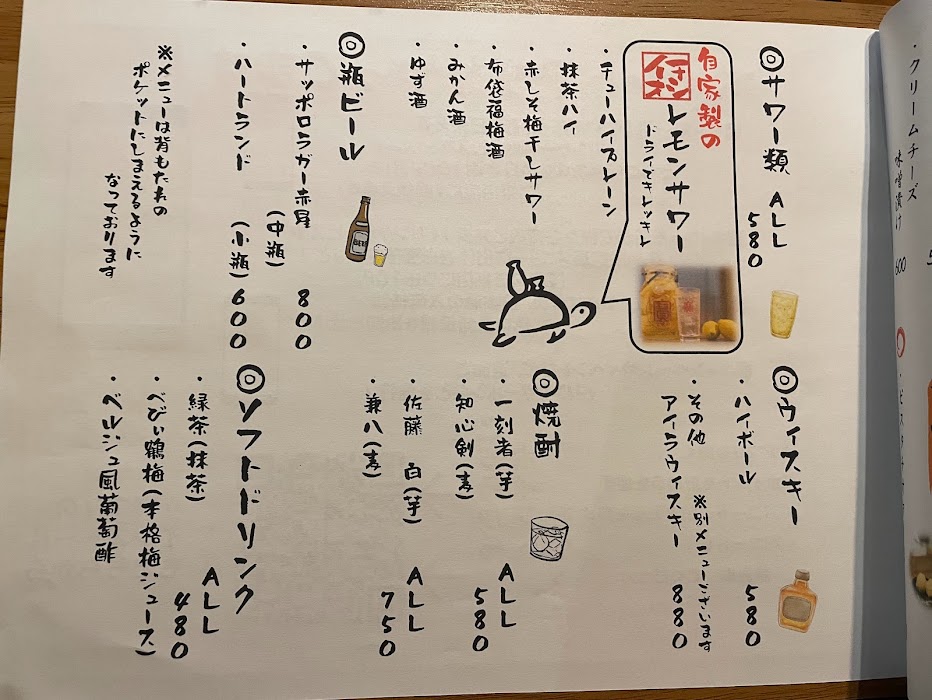 ◎サワー類 ALL 580
自家製の
イチオシ レモンサワー
ドライでキレッキレ
・チューハイプレーン
・抹茶ハイ
・赤しそ梅干しサワー
・布袋福梅酒
・みかん酒
・ゆず酒
◎瓶ビール
・サッポロラガー赤星
(中瓶) 800
・ハートランド (小瓶) 600
※メニューは背もたれの
ポケットにしまえるように
なっております
◎ウィスキー
・ハイボール 580
・その他 ※別メニューございます
アイラウィスキー 880
◎焼酎
・一刻者(芋) ALL
・知心剣(麦) 580
・佐藤 白(芋) ALL
・兼八(麦) 750
◎ソフトドリンク
・緑茶(抹茶) ALL
・べびぃ鶴梅(本格梅ジュース) 480
・ベルジュ風葡萄酢
・クリームチーズ
味噌漬け
600